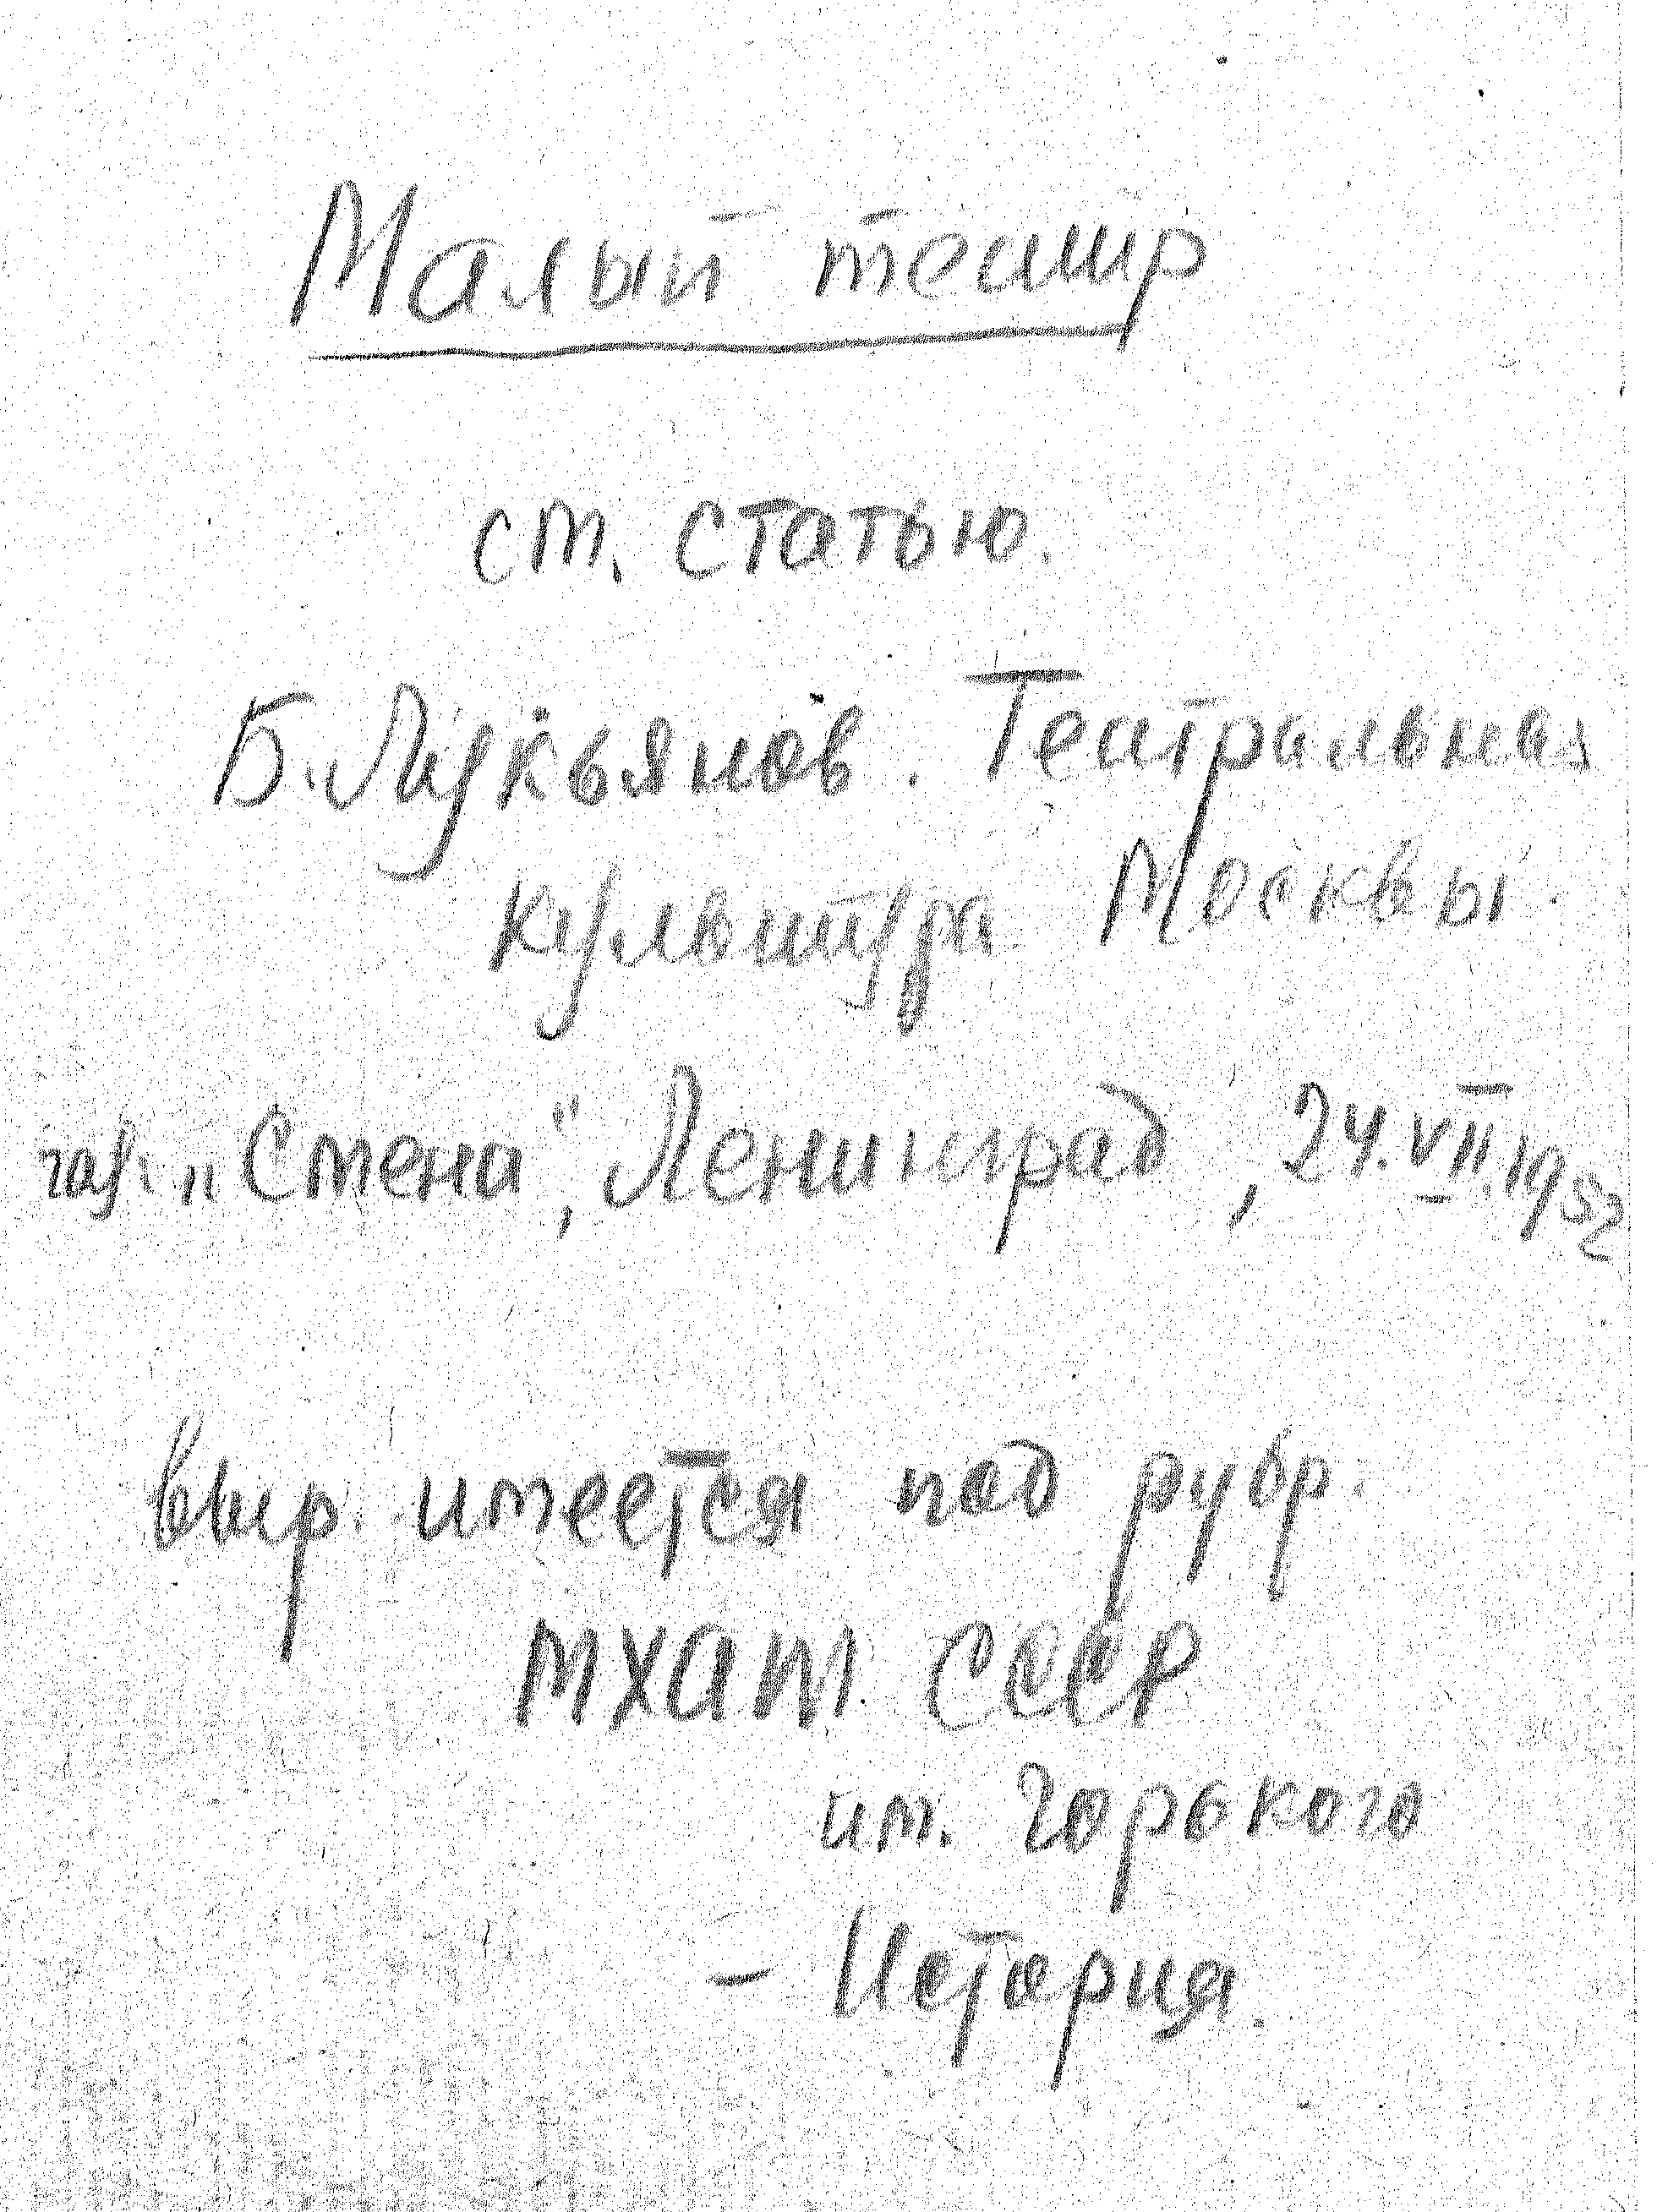 Малый театр
см. статью.
Б. Лукьянов. Театральная
культура Москвы.
газ. „Смена", Ленинград, 24.VII.1952
выр. имеется под рубр.
МХАТ СССР
им. Горького
– История.